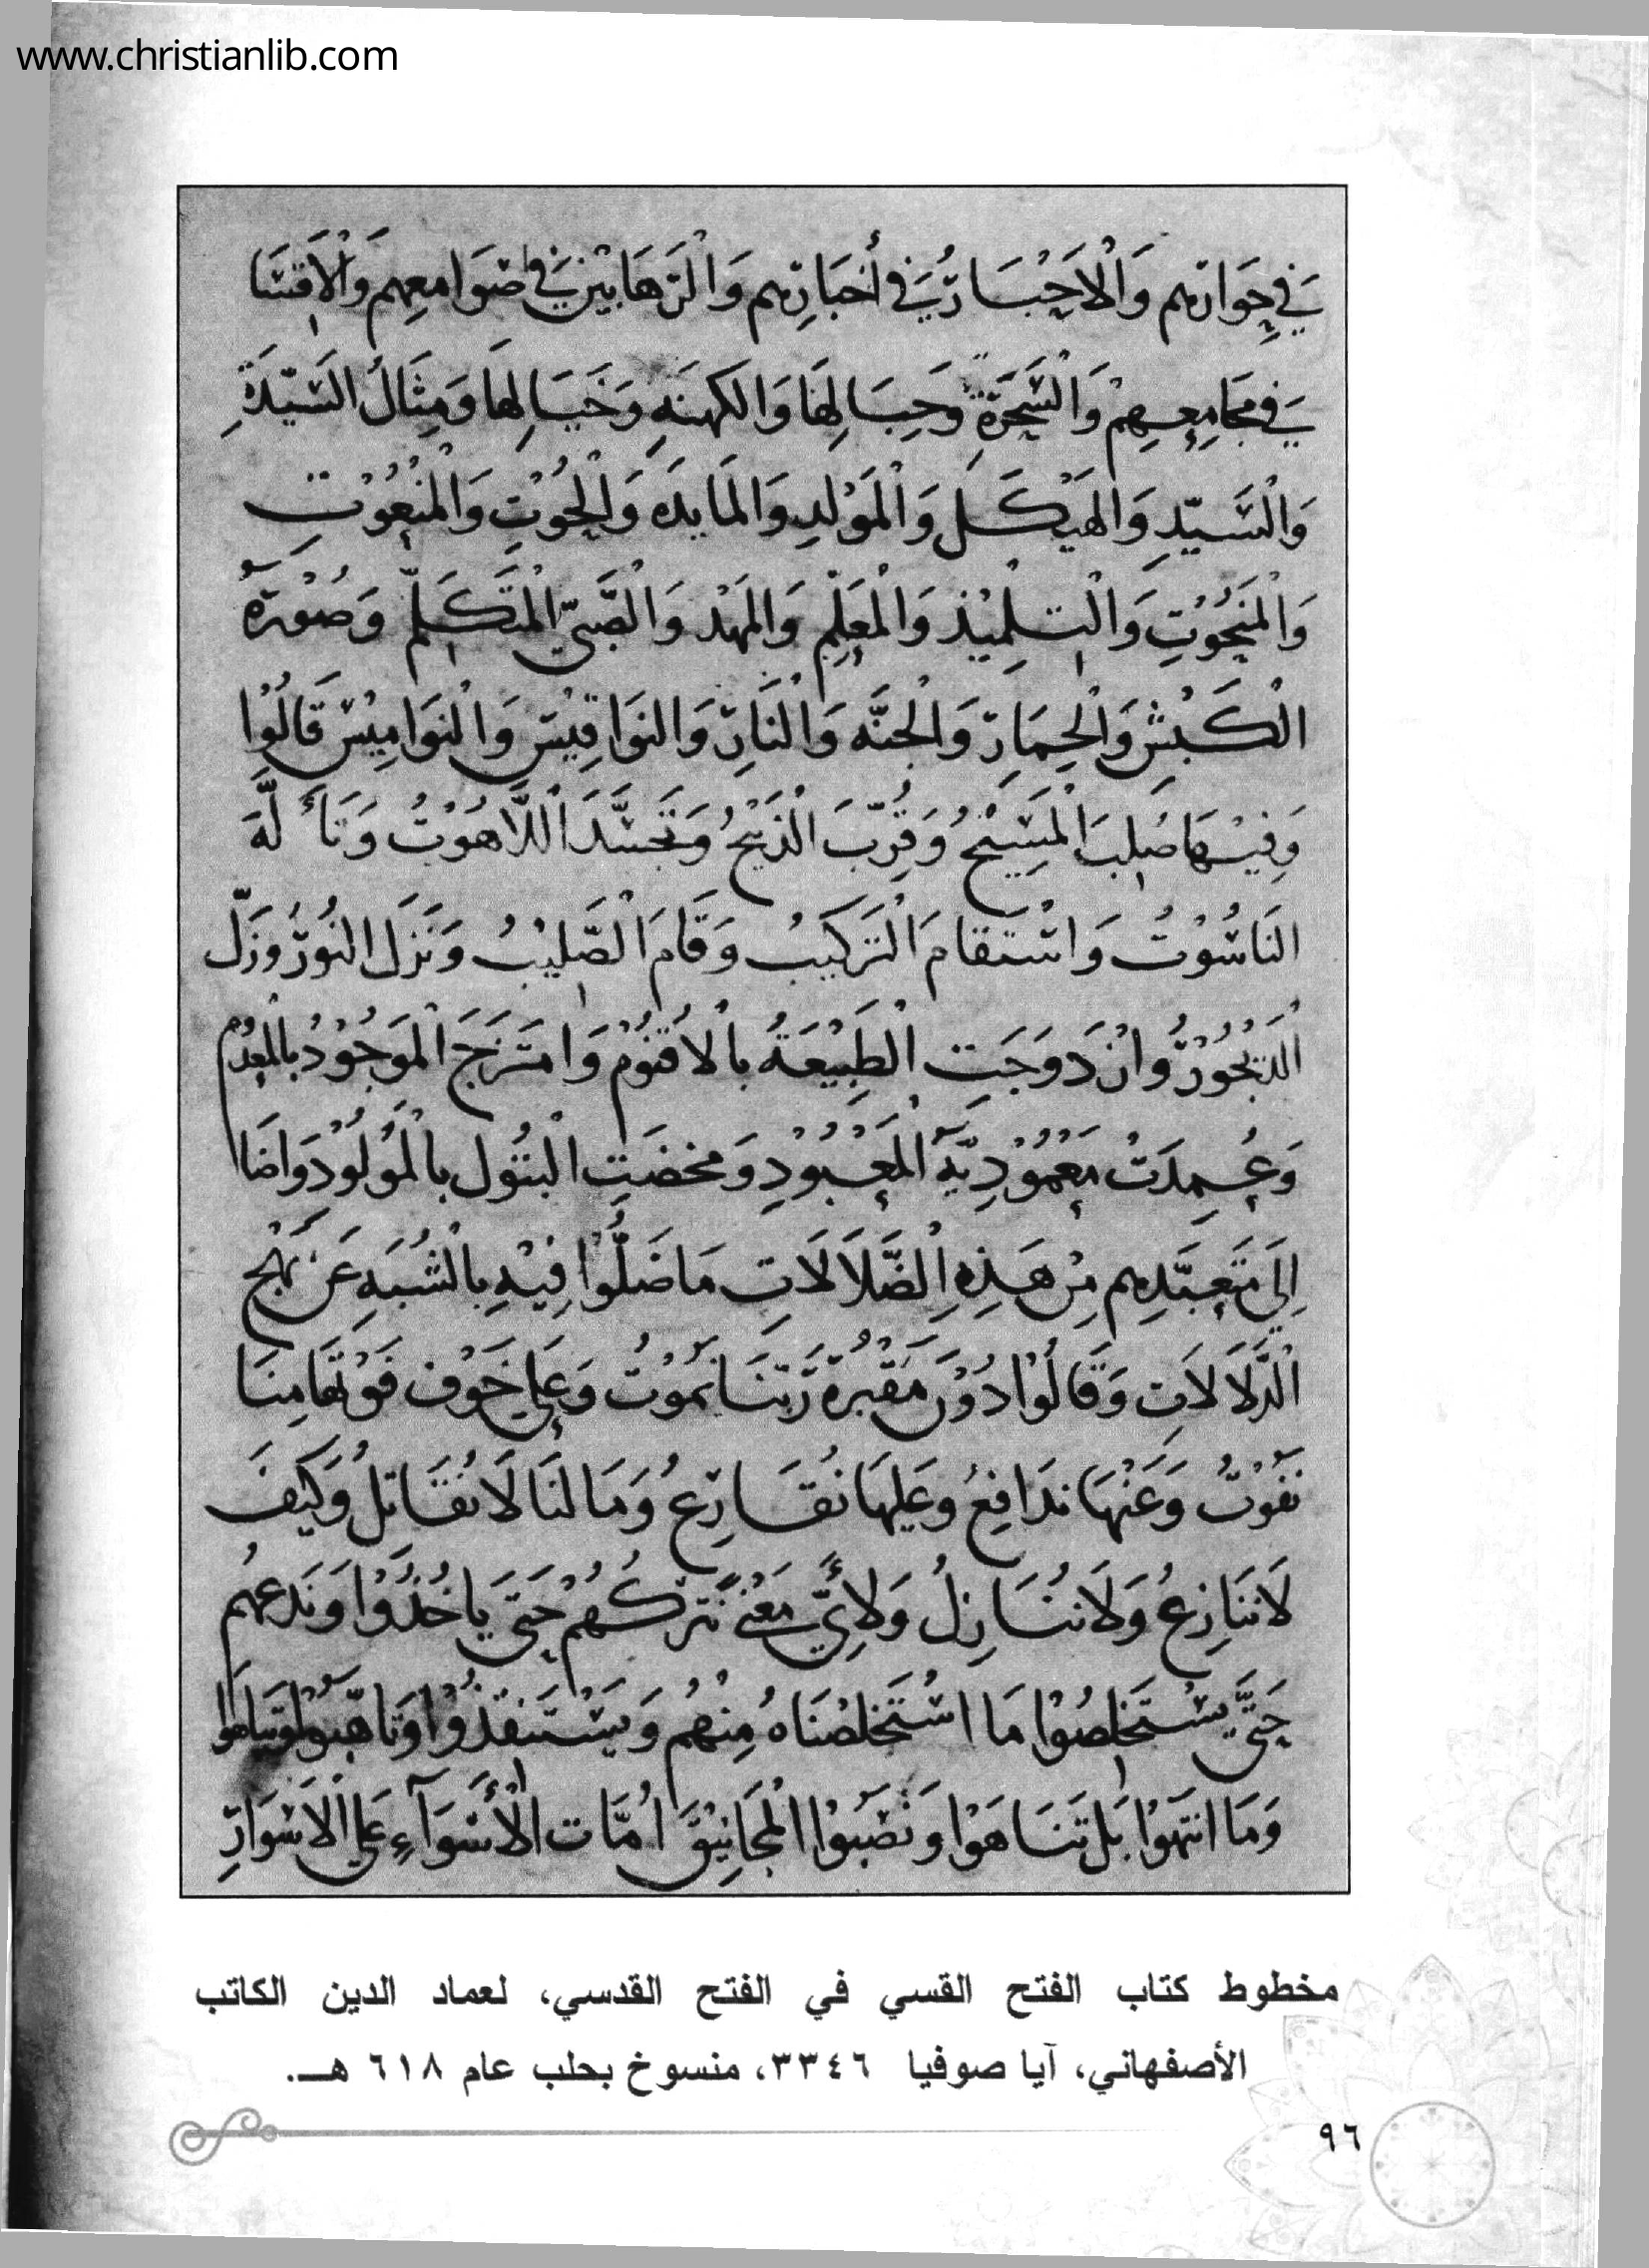 www.christianlib.com
في حوارتهم والاحبار في أخبارهم والرهابين في صوامعهم والاقسا
في مجامعهم والسحرة وحبالها والكهنه وخيالها ومثال السيدة
والسيد والهيكل والمولد والمايده والحوت والمنعوت
والمنحوت والتلميذ والمعلم والمهد والصبي المتكلم وصورة
الكبش والحمار والجنه والنار والنواقيس والنواميس قالوا
وفيها صلب المسيح وقرب الذبيح وتجسد اللاهوت وتأله
الناسوت واستقام التركيب وقام الصليب ونزل النور وزل
الديجور وازدوجت الطبيعة بالاقنوم وامتزج الموجود بالمعدوم
وعمدت معمودية المعبود ومخضت البتول بالمولود واضا
الى متعبدهم من هذه الضلالات ما ضلوا فيه بالشبه عن نهج
الدلالات وقالوا دون مقبرة ربنا نموت وعلى خوف فوتها منا
نفوت وعنها ندافع وعليها نقارع وما لنا لا نقاتل وكيف
لا ننازع ولا ننازل ولأي معنى نتركهم حتى ياخذوا وندعهم
حتى يستخلصوا ما استخلصناه منهم ويستنقذوا وتاهبوا وتباهوا
وما انتهوا بل تناهوا ونصبوا المجانيق امات الأسوآء على الاسوار
مخطوط كتاب الفتح القسي في الفتح القدسي، لعماد الدين الكاتب
الأصفهاني، آيا صوفيا ٣٣٤٦، منسوخ بحلب عام ٦١٨ هـ.
٩٦